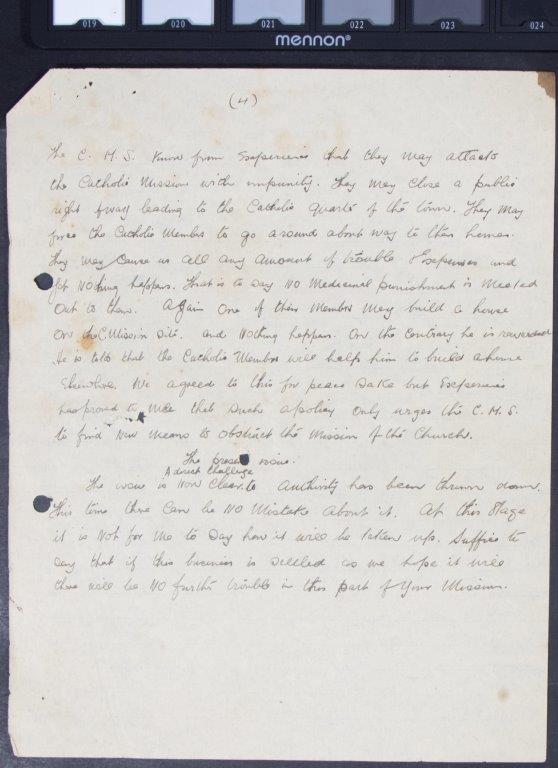 019 020 021 022 023 024
mennon®
(4)
The C. M. S. Know from Experience that they may attack
the Catholic Mission with impunity. They may close a public
right of way leading to the Catholic quarter of the town. They may
force the Catholic Members to go around about way to their homes.
They may cause us all any amount of trouble & Expenses and
yet Nothing happens. That is to say No Medicinal punishment is Meeted
out to them. Again one of their Members May build a house
on the C. Mission site. and Nothing happens. On the contrary he is rewarded
He is told that the Catholic Members will help him to build a house
Elsewhere. We agreed to this for peace sake but Experience
has proved to me that such a policy only urges the C. M. S.
to find New means to obstruct the Mission of the Church.
The present issue.
A direct challenge
The issue is Now clear. to Authority has been thrown down.
This time there Can be No Mistake about it. At this Stage
it is Not for Me to Say how it will be taken up. Suffice to
say that if this business is settled as we hope it will
there will be No further trouble in this part of Your Mission.